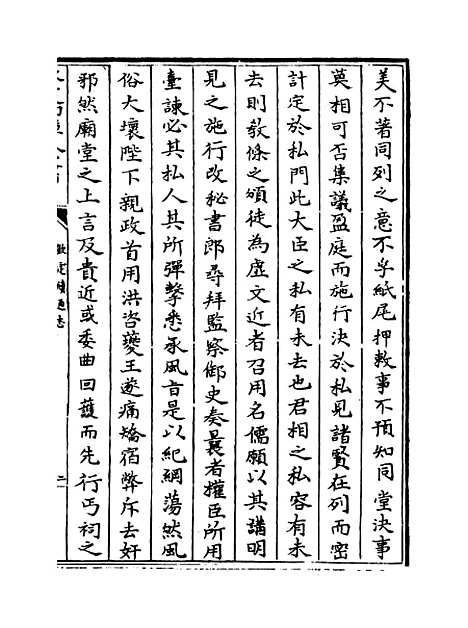 美不著同列之意不孚紙尾押敕事不預知同堂決事
莫相可否集議盈庭而施行決於私見諸賢在列而密
計定於私門此大臣之私有未去也君相之私容有未
去則教條之頒徒為虛文近者召用名儒願以其講明
見之施行改秘書郎尋拜監察御史奏曩者權臣所用
臺諫必其私人其所彈擊悉承風旨是以紀綱蕩然風
俗大壞陛下親政首用洪咨夔王遂痛矯宿弊斥去奸
邪然廟堂之上言及貴近或委曲回䕶而先行丐祠之
欽定續通志
二